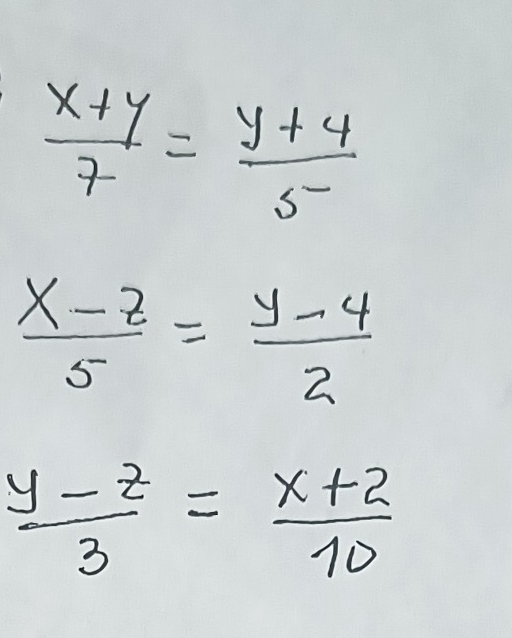 x+y/7 = y+4/5
x-z/5 = y-4/2
y-z/3 = x+2/10